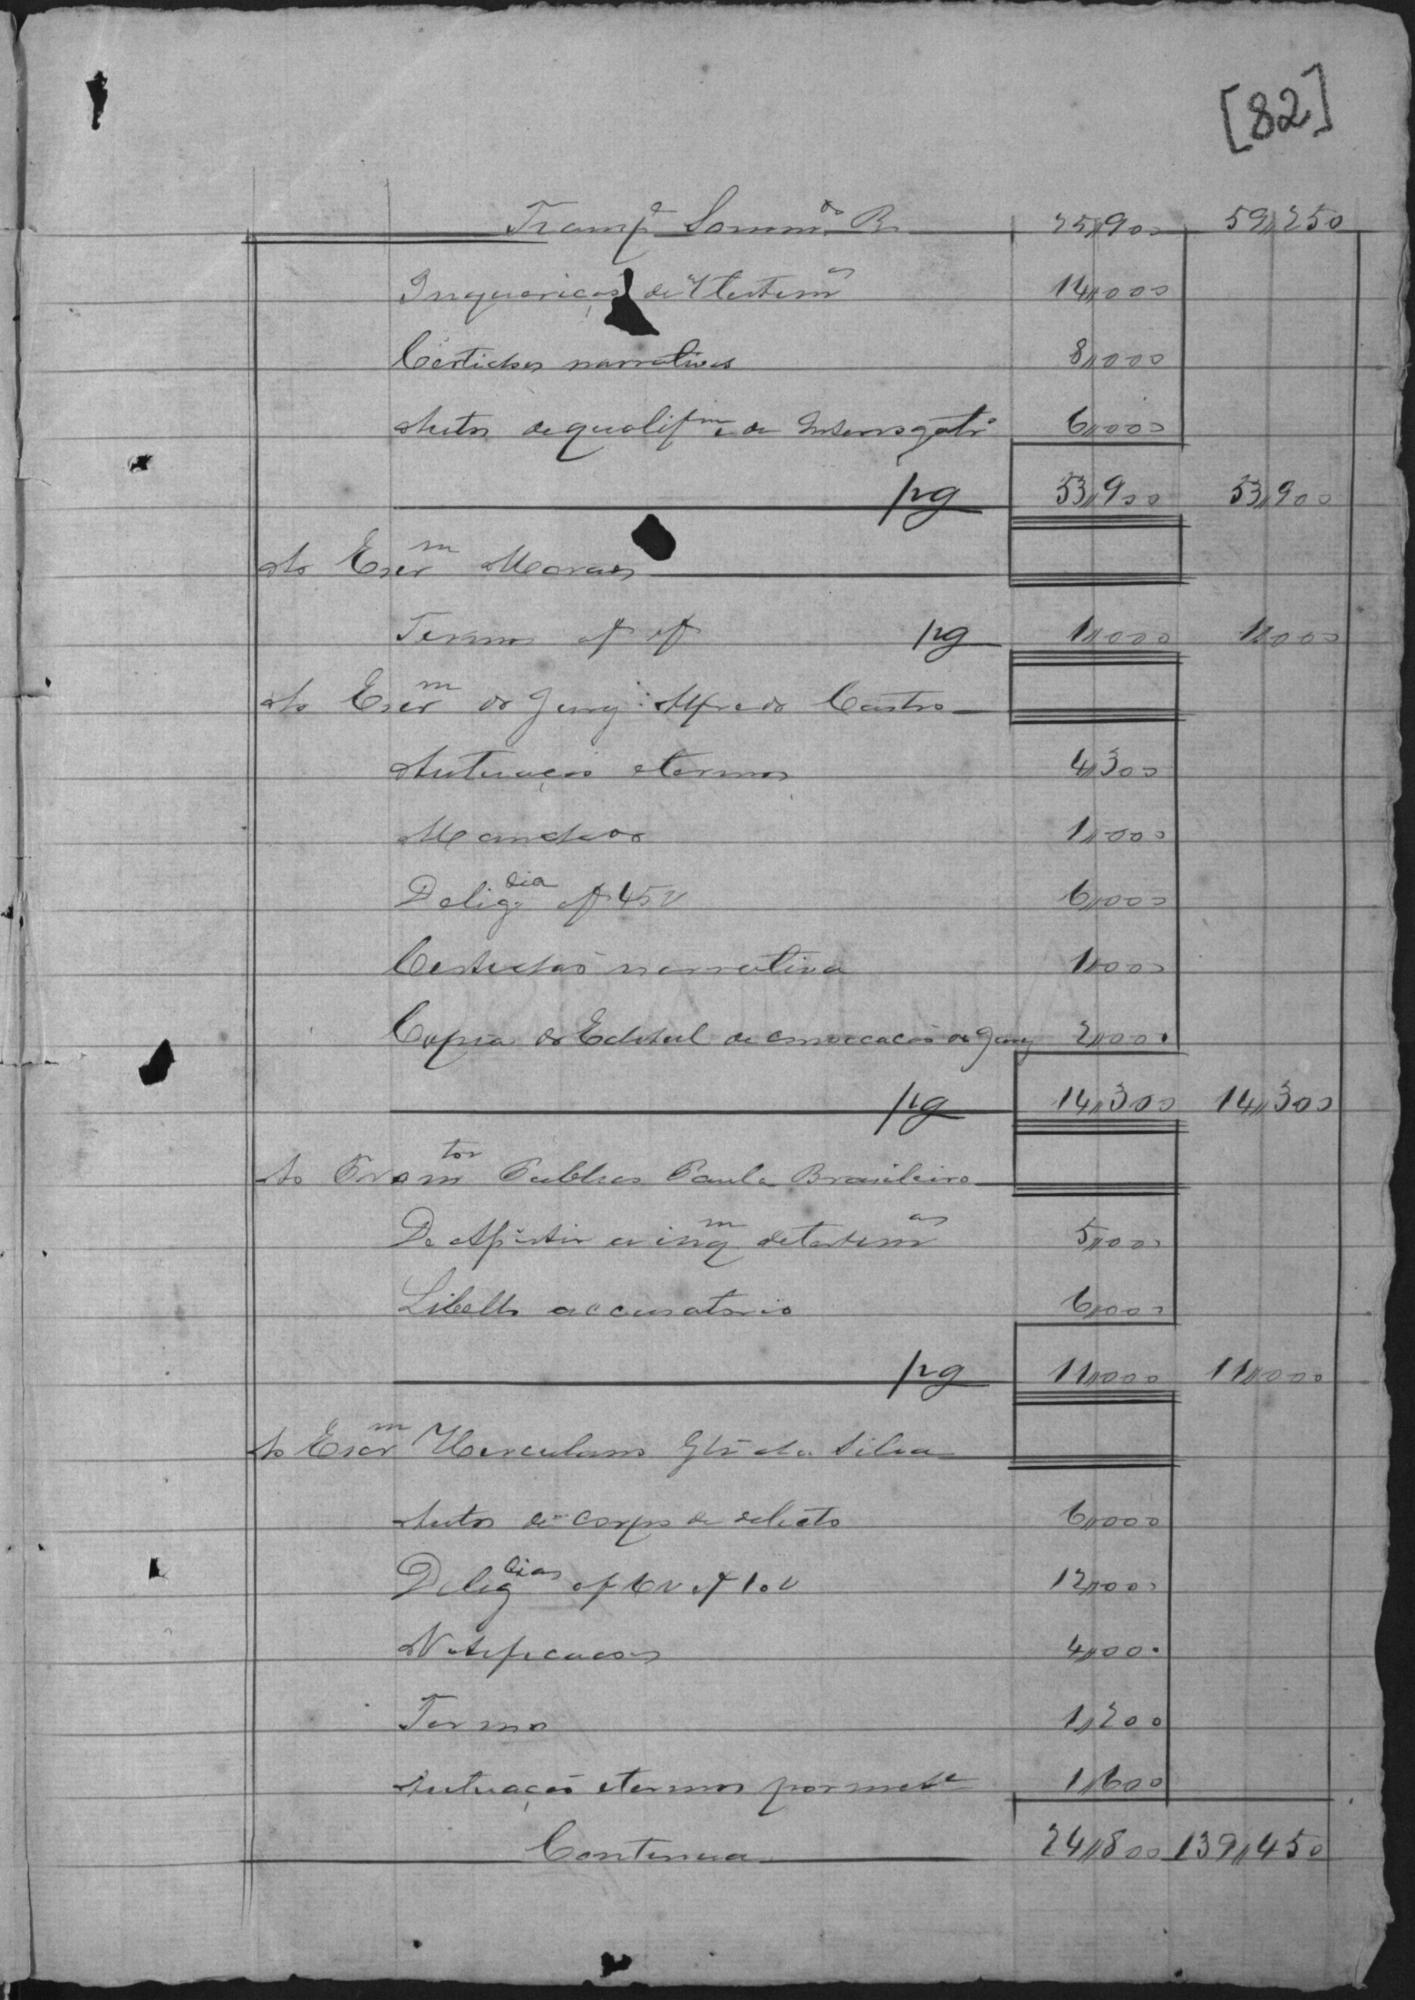 [82]
Transp.e Somm.do R. 25,,900 59,,250
Inquerições de 7 testem.as 14,,000
Certidões narrativas 8,,000
Autos de qualif.m e de Interrogat.o 6,,000
pg 53,,900 53,,900
Ao Escr.m Moraes
Termos pg 1,,000 1,,000
Ao Escr.m do Jury: Alfredo Castro
Autuação e termos 4,,300
Mandado 1,,000
Delig.cia af 45 v 6,,000
Certidão narrativa 1,,000
Copia do Edital de convocação do Jury 2,,000
pg 14,,300 14,,300
Ao Prom.tor Publico Paula Brasileiro
De Assistir a inq.m de testem.as 5,,000
Libello accusatorio 6,,000
pg 11,,000 11,,000
Ao Escr.m Herculano da Silva
Autos de corpo de delicto 6,,000
Delig.cias af 6 v af 10 v 12,,000
Notificacões 4,,000
Termo 1,,200
Autuação e termos por met.e 1,,600
Continua 24,,800 139,,450